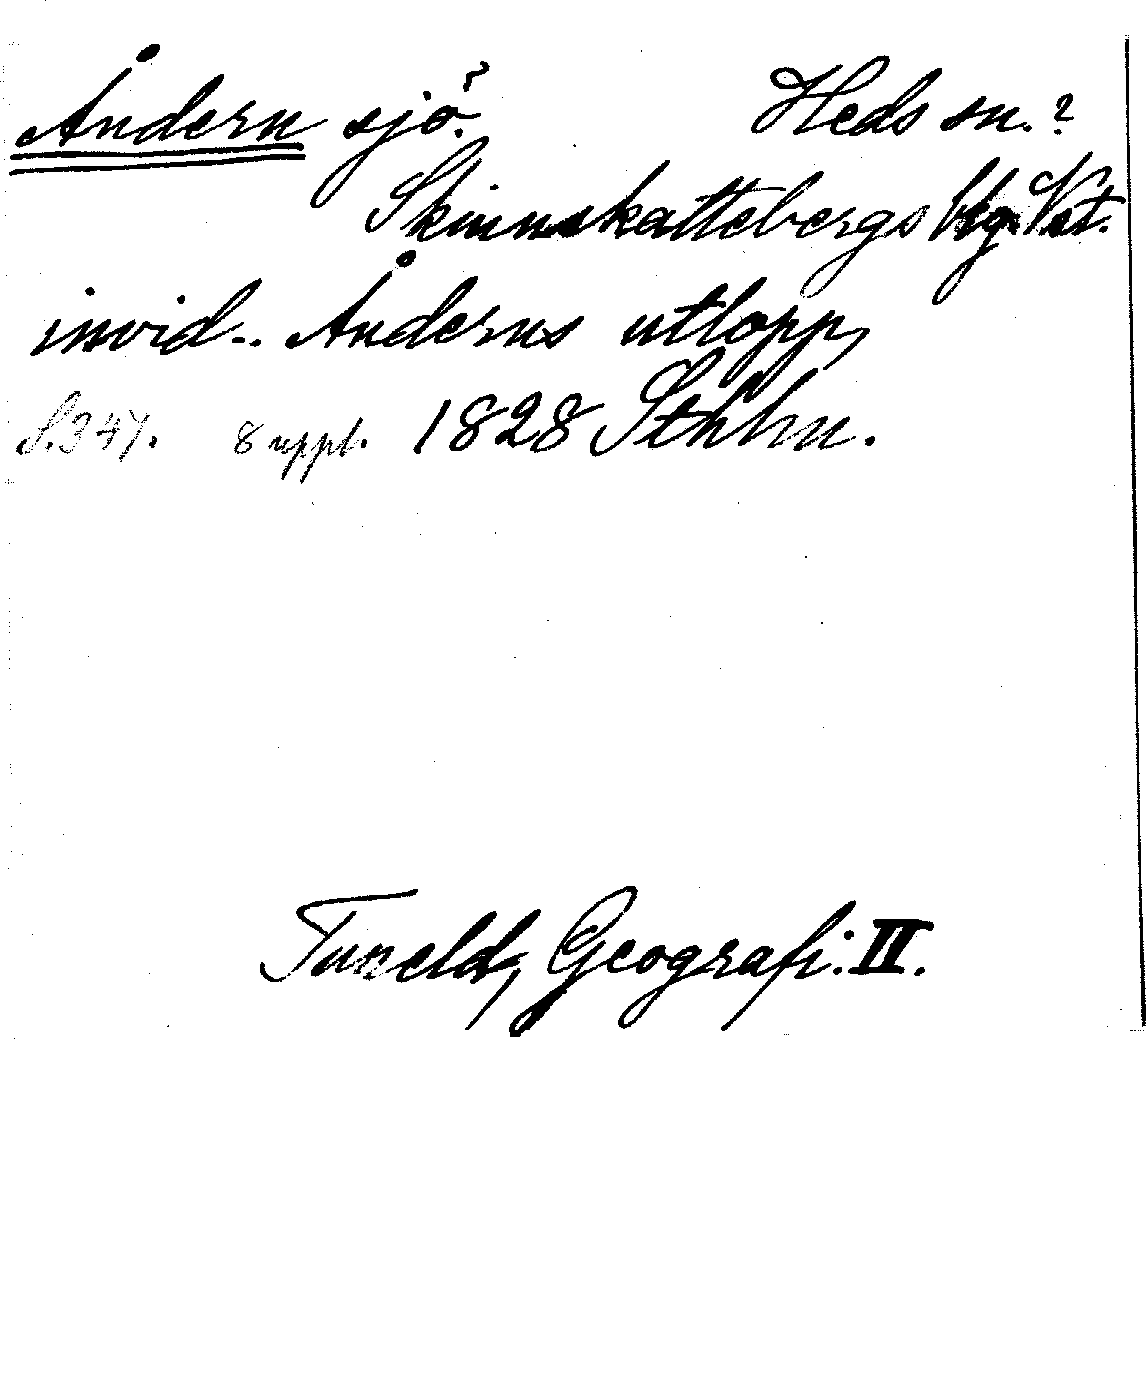 Åndern sjö? Heds sn.?
Skinnskattebergs blg. Vst.
invid..Ånderns utlopp,
S. 347. 8 uppl. 1828 Sthlm.
Tuneld, Geografi. II.